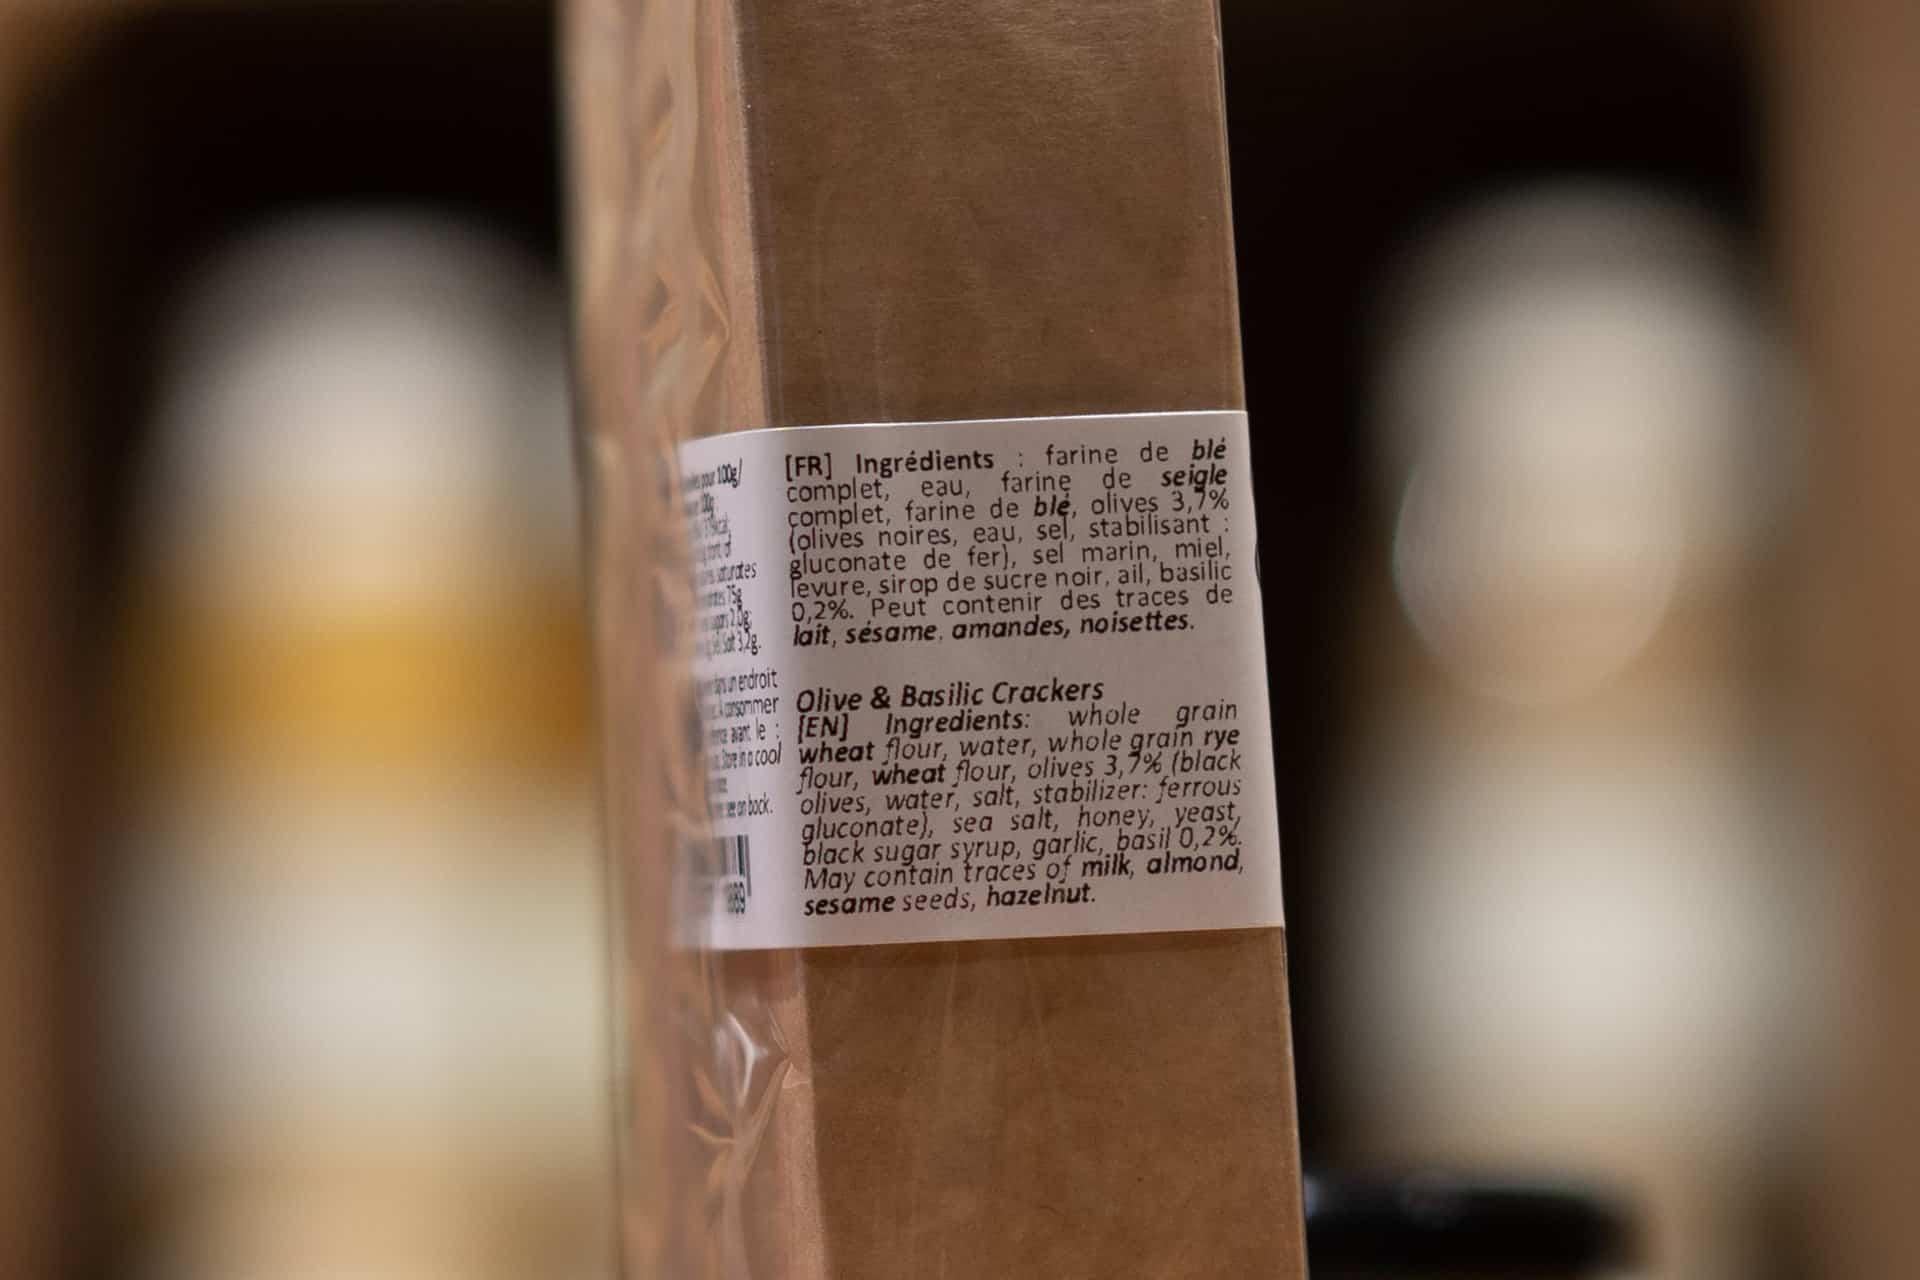 pour 100g/
saturates
75g
sugars 2,0g;
Salt 3,2g.
un endroit
À consommer
avant le :
Store in a cool
see on back.
[FR] Ingrédients : farine de blé
complet, eau, farine de seigle
complet, farine de blé, olives 3,7%
(olives noires, eau, sel, stabilisant :
gluconate de fer), sel marin, miel,
levure, sirop de sucre noir, ail, basilic
0,2%. Peut contenir des traces de
lait, sésame, amandes, noisettes.
Olive & Basilic Crackers
[EN] Ingredients: whole grain
wheat flour, water, whole grain rye
flour, wheat flour, olives 3,7% (black
olives, water, salt, stabilizer: ferrous
gluconate), sea salt, honey, yeast,
black sugar syrup, garlic, basil 0,2%.
May contain traces of milk, almond,
sesame seeds, hazelnut.